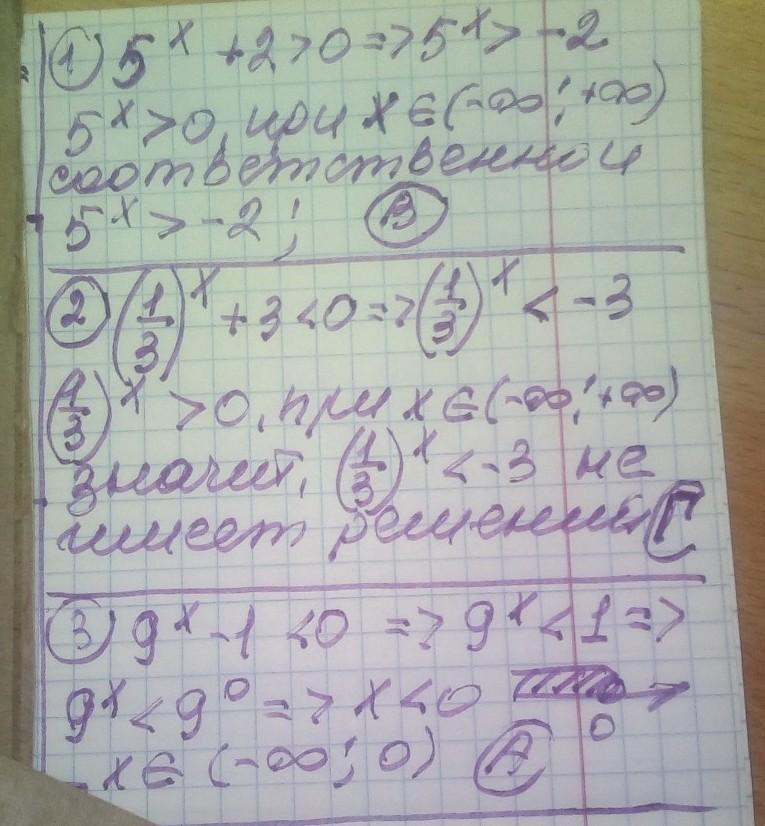 ① 5^x + 2 > 0 => 5^x > -2
5^x > 0, при x ∈ (-∞; +∞)
соответственно и
5^x > -2; Ⓑ
② (1/3)^x + 3 < 0 => (1/3)^x < -3
(1/3)^x > 0, при x ∈ (-∞; +∞)
значит, (1/3)^x < -3 не
имеет решений Г
③ 9^x - 1 < 0 => 9^x < 1 =>
9^x < 9^0 => x < 0
0
x ∈ (-∞; 0) Ⓐ